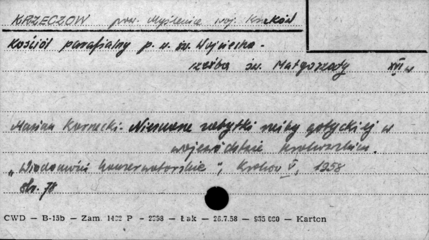 KRZECZÓW pow. Myślenice woj. Kraków
Kościół parafialny p. w. św. Wojciecha.
rzeźba św. Małgorzaty
Marian Kornecki. Nieznane zabytki rzeźby gotyckiej w
województwie krakowskim.
„Wiadomości konserwatorskie", Kraków V, 1958
str. 78
CWD — B-15b — Zam. 1422 P - 2258 — Łak — 26.7.58 — 935 000 — Karton